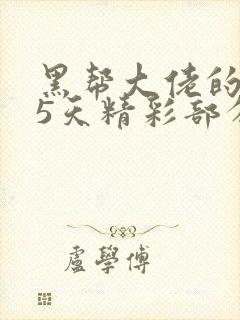 黑帮大佬的
5天精彩部分
盧學傅